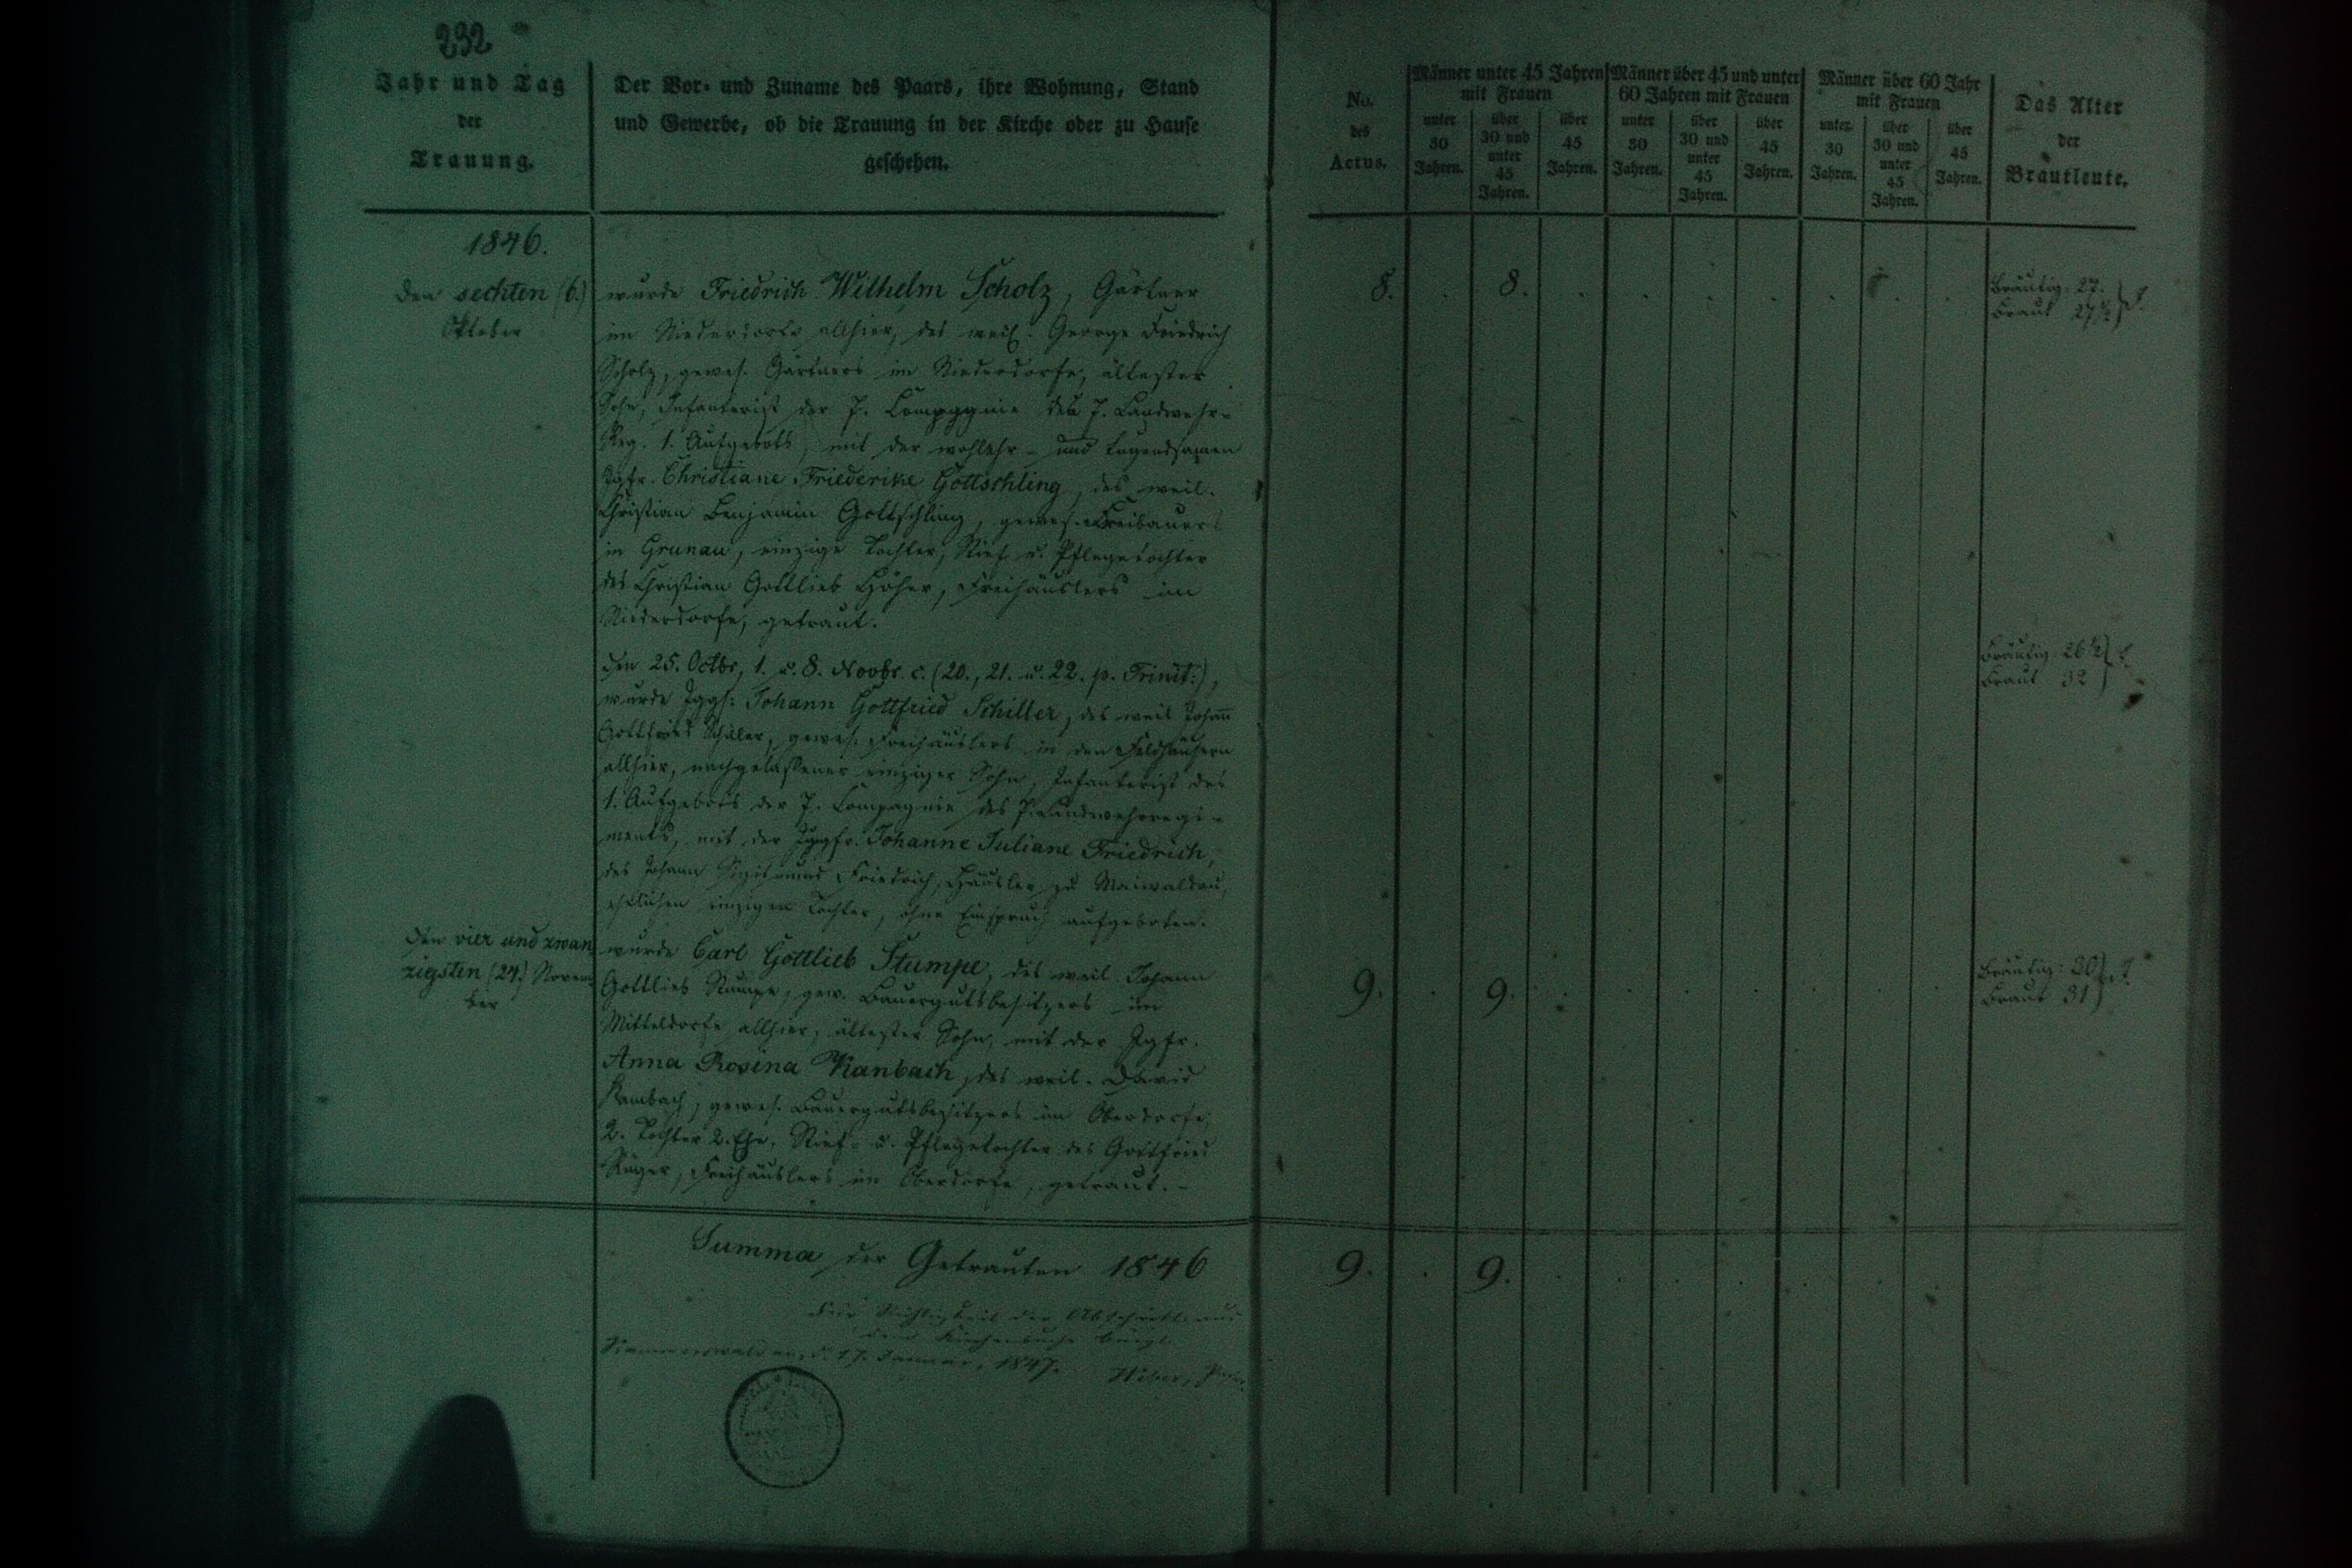 232
Jahr und Tag
der
Trauung.
Der Vor- und Zuname des Paars, ihre Wohnung, Stand
und Gewerbe, ob die Trauung in der Kirche oder zu Hause
geschehen.
1846.
Den sechten (6.)
Oktober
wurde Friedrich Wilhelm Scholz, Gärtner
im Niederdorfe allhier, des weil. George Friedrich
Scholz, gewes. Gärtners im Niederdorfe, ältester
Sohn, Infanterist der 7. Compagnie des 7. Landwehr-
Reg. 1. Aufgebots, mit der wohlehr- und tugendsamen
Jgfr. Christiane Friederike Gottschling, des weil.
Christian Benjamin Gottschling, gewes. Freibauers
in Grunau, einzige Tochter, Stief u. Pflegetochter
des Christian Gottlieb Höher, Freihäuslers im
Niederdorfe, getraut.
Den 25. Octbr, 1. u. 8. Novbr. c. (20., 21. u. 22. p. Trinit:),
wurde Jggs: Johann Gottfried Schiller, des weil Johann
Gottfried Schiller, gewes. Freihäuslers in den Feldhäusern
allhier, nachgelassener einziger Sohn, Infanterist des
1. Aufgebots der 7. Compagnie des 7. Landwehrregi-
ments, mit der Jgfr. Johanne Juliane Friedrich,
des Johann Sigismund Friedrich, Häusler zu Maiwaldau,
ehelichen einzigen Tochter, ohne Einspruch aufgeboten.
Den vier und zwan
zigsten (24.) Novem
ber
wurde Carl Gottlieb Stumpe, des weil. Johann
Gottlieb Stumpe, gew. Bauergutsbesitzers im
Mitteldorfe allhier, ältester Sohn, mit der Jgfr.
Anna Rosina Kanbach, des weil. David
Kambach, gewes. Bauergutsbesitzers im Oberdorfe,
2. Tochter 2. Ehe, Stief- u. Pflegetochter des Gottfried
Rüger, Freihäuslers im Oberdorfe, getraut. -
Summa der Getrauten 1846
Richtigkeit der Abschrift aus
dem Kirchenbuche
d. 17. Januar, 1847.
No.
des
Actus.
Männer unter 45 Jahren
mit Frauen
unter
30
Jahren.
über
30 und
unter
45
Jahren.
über
45
Jahren.
Männer über 45 und unter
60 Jahren mit Frauen
unter
30
Jahren.
über
30 und
unter
45
Jahren.
über
45
Jahren.
Männer über 60 Jahr
mit Frauen
unter
30
Jahren.
über
30 und
unter
45
Jahren.
über
45
Jahren.
Das Alter
der
Brautleute.
8. 8. Bräutig. 27.
Braut 27 ½ J.
Bräutig. 26 ½
Braut 32 J.
9. 9. Bräutig: 30
Braut 31 J.
9. 9.